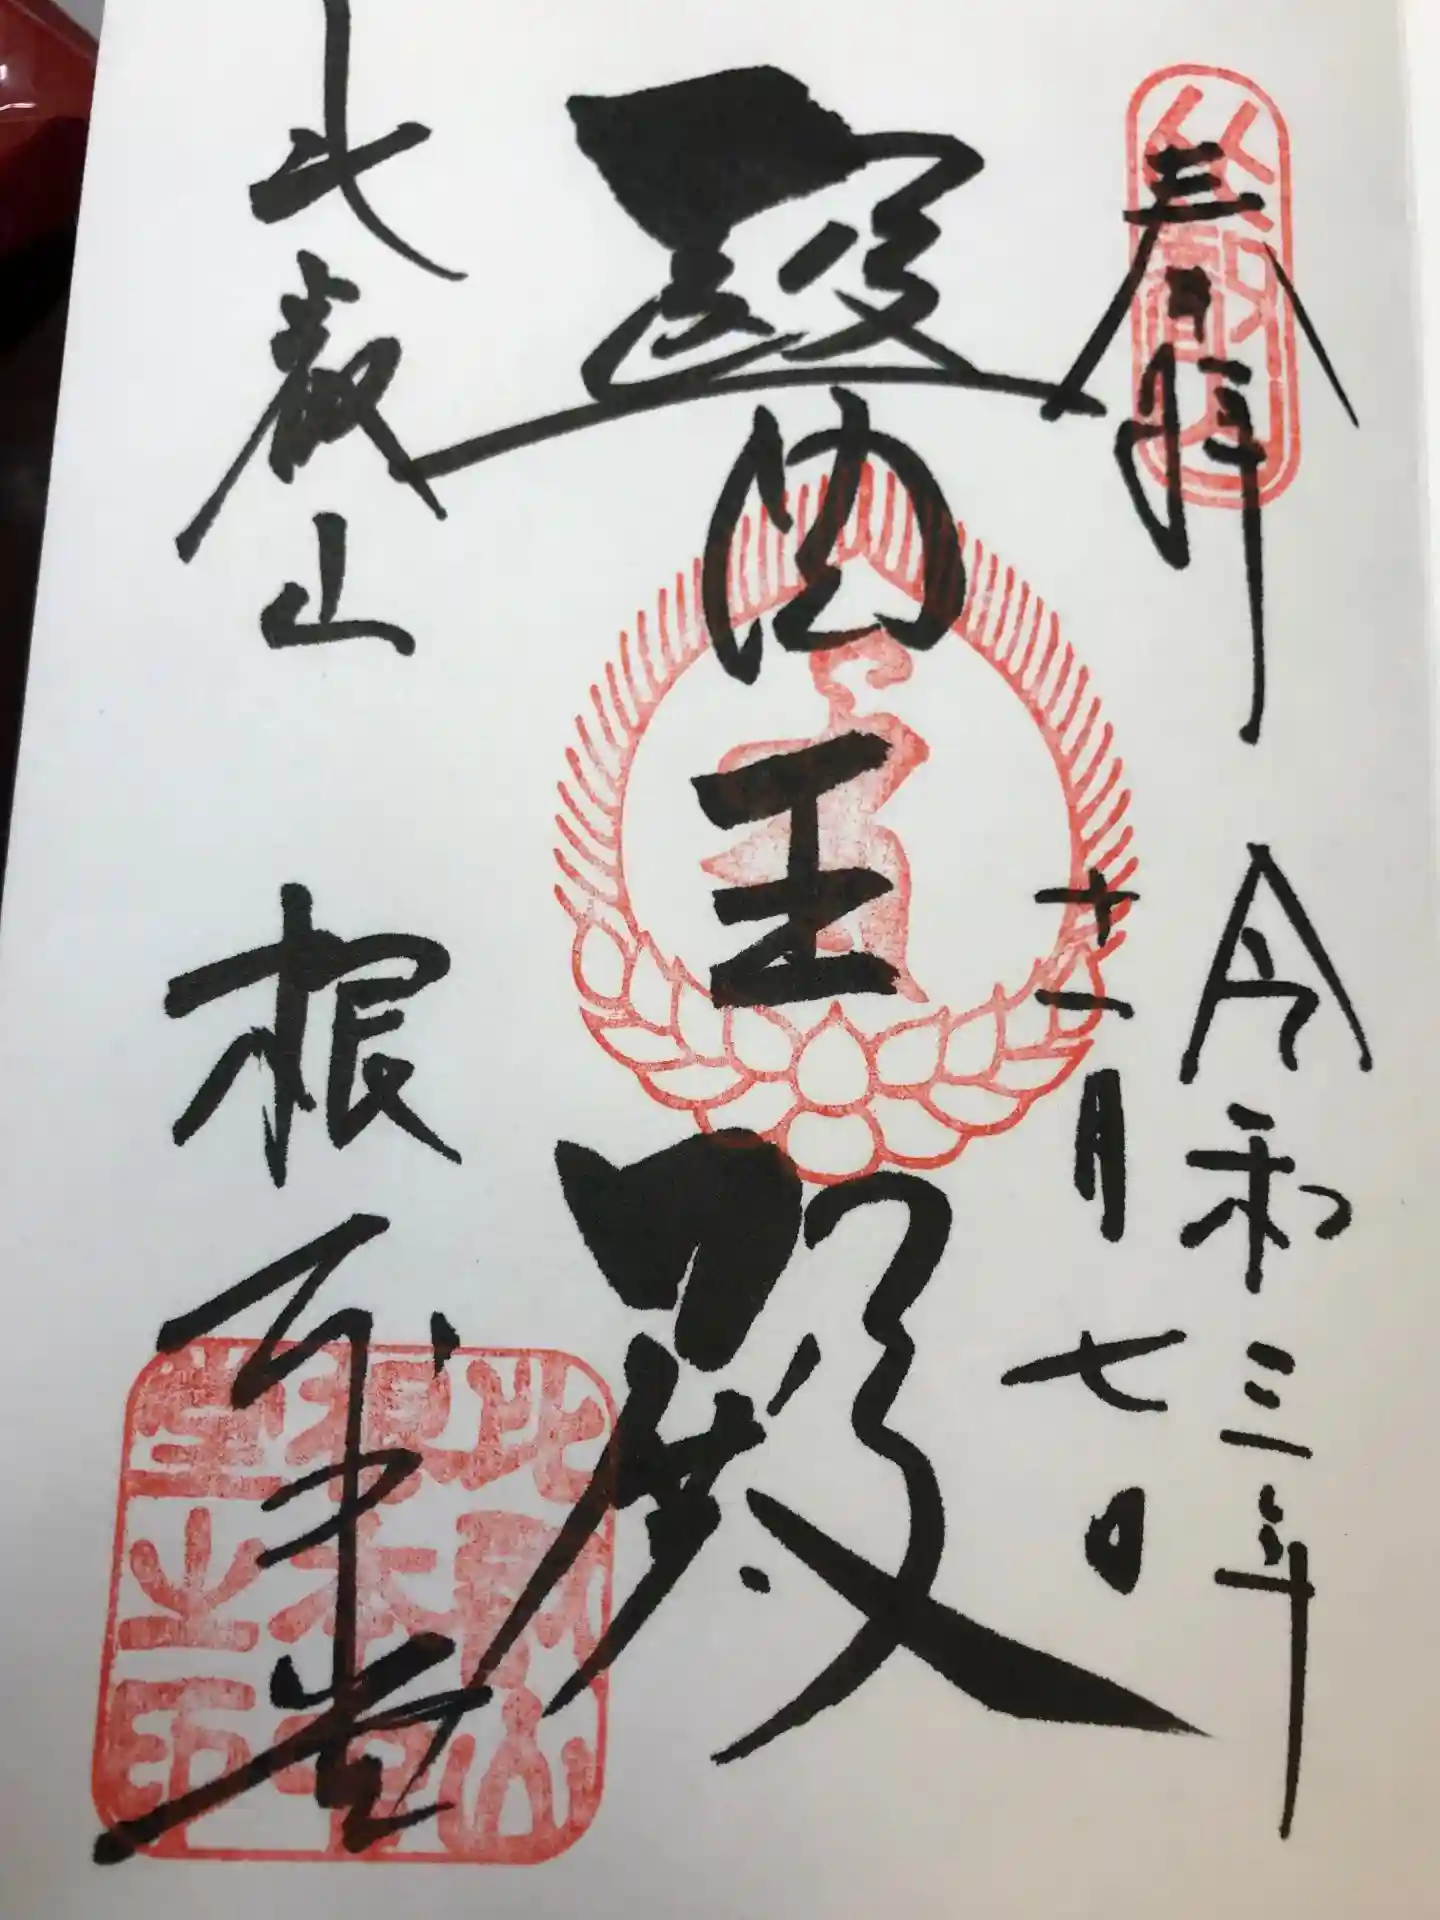 奉拝
令和三年
十二月七日
醫王殿
比叡山 根本中堂
比叡山
比叡山
根本中
堂之印